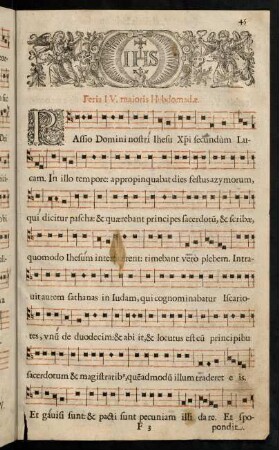 45
IHS
Feria IV. maioris Hebdomadæ
PAssio Domini nostri Ihesu Xpi secundum Lu-
cam. In illo tempore: appropinquabat dies festus azymorum,
qui dicitur paschæ & quærebant principes sacerdotũ, & scribæ,
quomodo Ihesum interficerent: timebant vero plebem. Intra-
uit autem sathanas in Iudam, qui cognominabatur Iscario-
tes, vnũ de duodecim: & abiit, & locutus est cũ principibus
sacerdotum & magistratibꝰ, quẽadmodũ illum traderet eis.
Et gauisi sunt: & pacti sunt pecuniam illi dare. Et spo-
F 3
pondit.